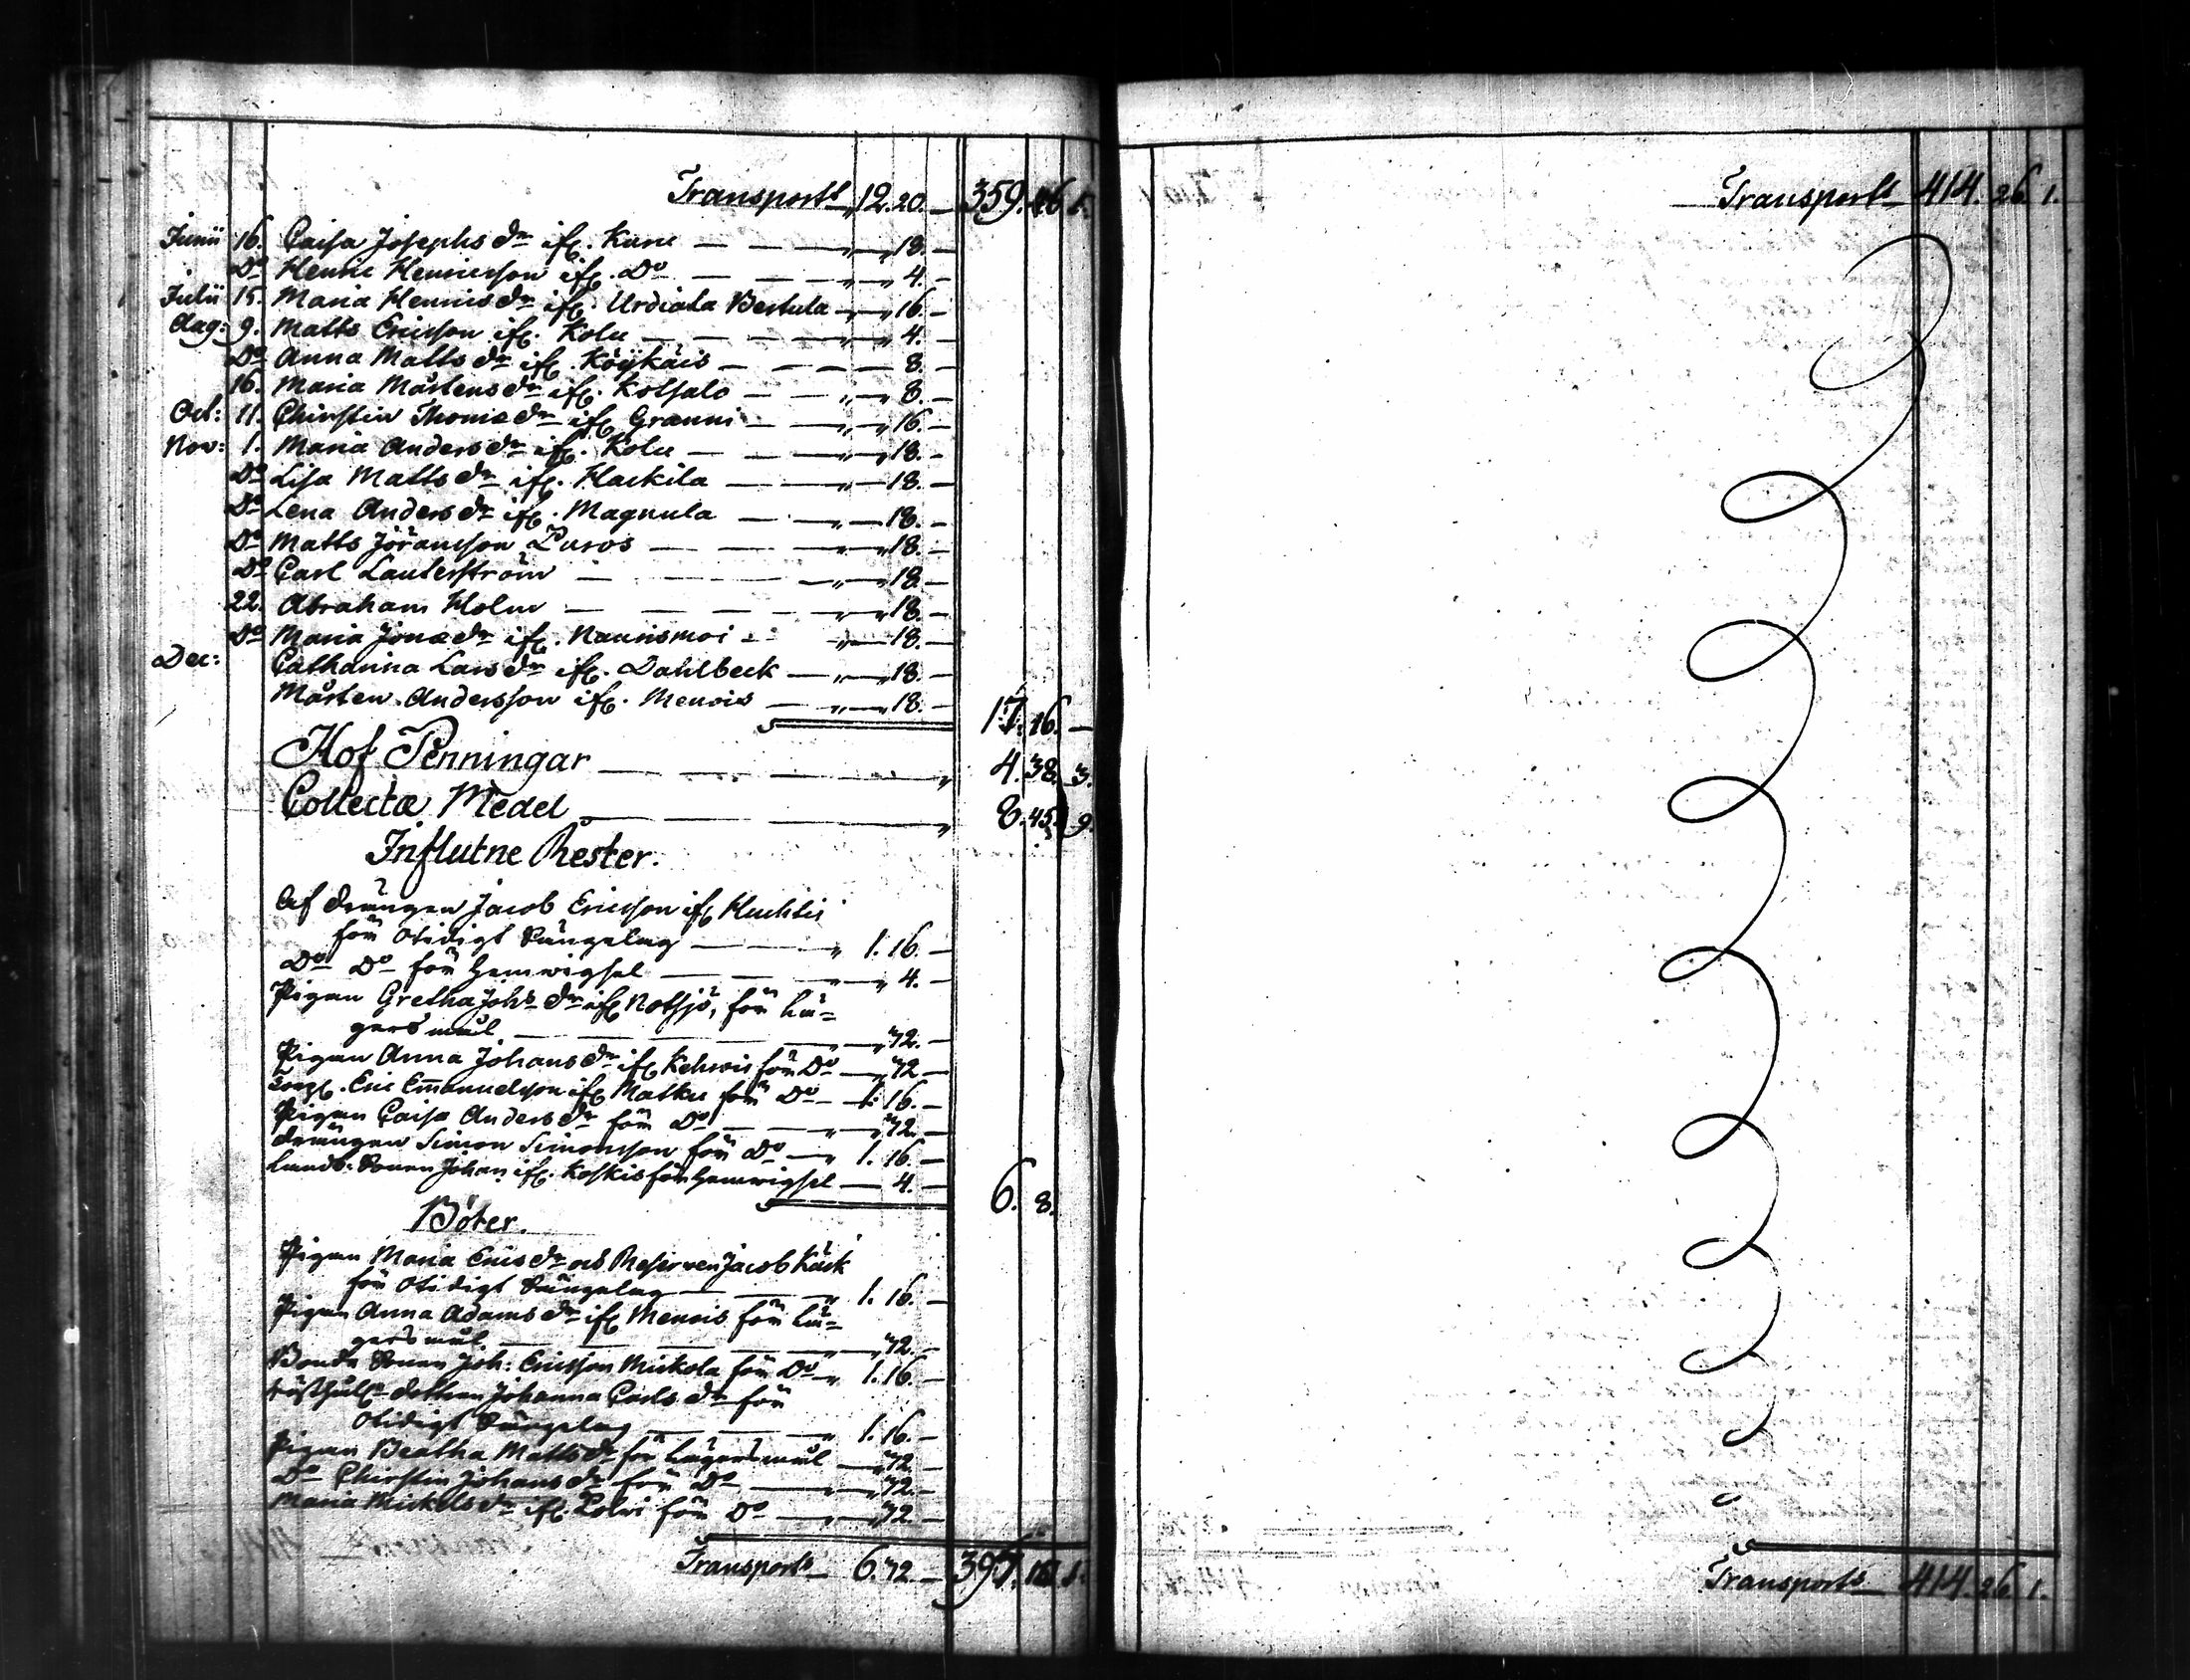 Transport „ 12. 20. — 359. 46 1.
Junii 16. Caisa Josephs dr ifr. Kuru — — „ „ 18. —
Do Henric Henricsson ifr. Do — — „ „ 4. —
Julii 15. Maria Henrics dr ifr. Urdiala Bertula „ „ 16. —
Aug: 9. Matts Ericsson ifr. Kolu — — „ „ 4. —
Do Anna Matts dr ifr. Köÿkäis — — — 8. —
16. Maria Mårtens dr ifr. Kotsalo — — „ 8. —
Oct: 11. Chirstin Thomæ dr ifr. Granni — — „ „ 16. —
Nov: 1. Maria Anders dr ifr. Kolu — — „ „ 18. —
Do Lisa Matts dr ifr. Hackila — — „ — 18. —
Do Lena Anders dr ifr. Magnula — — „ — 18. —
Do Matts Jöransson Puros — — „ „ 18. —
Do Carl Lauterström — — „ „ 18. —
22. Abraham Holm — — — „ „ 18. —
Do Maria Jonæ dr ifr. Naurismoi — „ — 18. —
Dec: Catharina Lars dr ifr. Dahlbeck — „ „ 18. —
Mårten Andersson ifr. Menois — „ „ 18. — 17. 16. —
Hof Penningar — — — — „ 4. 38. 3.
Collectæ Medel — — — „ 8. 45. 9.
Influtne Rester.
Af drängen Jacob Ericsson ifr Huchtis
för Otidigt Sängelag — — „ 1. 16. —
Do Do för hemvigsel — — „ „ 4. —
Pigan Gretha Johs dr ifr Notsjö, för Lä-
gersmål — — — „ 72. —
Pigan Anna Johans dr ifr Kehrois för Do — „ 72 —
Torp. Eric Emanuelsson ifr Matku för Do — 1. 16. —
Pigan Caisa Anders dr för Do — — „ „ 72. —
drängen Simon Simonsson för Do — „ 1. 16. —
Landb: Sonen Johan ifr. Koskis för hemvigsel — 4. — 6. 8.
Böter.
Pigan Maria Erics dr och Reserven Jacob Käck
för Otidigt Sängelag — — „ 1. 16. —
Pigan Anna Adams dr ifr Menois för Lä-
gersmål — — — „ 72. —
Bonde Sonen Joh: Ericsson Mickola för Do „ 1. 16. —
dottren Johanna Carls dr för
Otidigt Sängelag — — „ 1. 16. —
Pigan Beatha Matts dr för Lägersmål — „ 72. —
Do Chirstin Johans dr för Do — „ 72. —
Maria Mickels dr ifr. Polvi för Do — „ 72. —
Transport 6. 72. — 1.
Transport 414. 26. 1.
Transport 414. 26. 1.